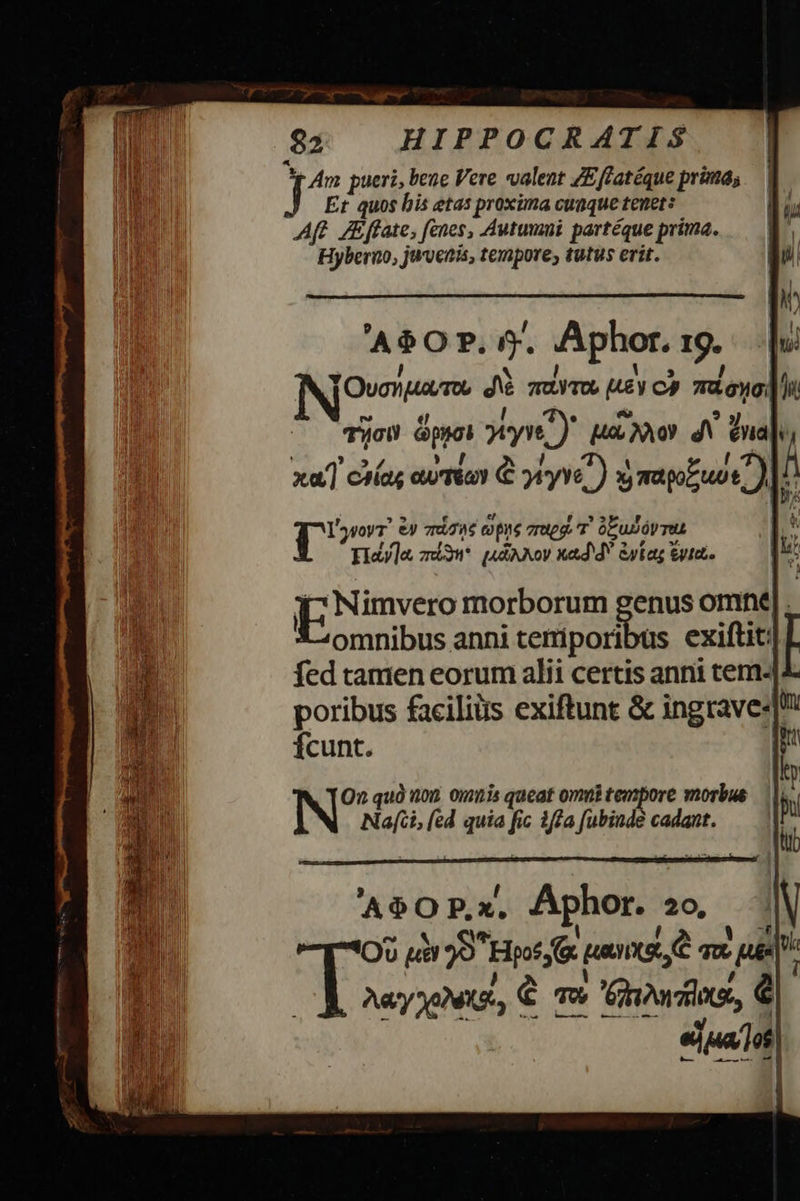 82 HIPPOCRATIS
JAm pueri, bene Vere valent Æſtatéque prima,
Et quos his ætas proxima cunque tenet:
Aſt Æſtate, ſenes, Autumni partéque prima.
Hyberno, juvenis, tempore, tutus erit.
ἈΦΟΡ. ιθ'. Aphor. 19.
ΝΟυσήματα δὲ πάντα μὲν ἐν πάσῃσι
τῇσιν ὥρῃσι γίγνε) μᾶλλον δ' ἔνια
κατ' ἐνίας αὐτέων & γίγνε) ϗ παροξύνε)
Γίγνοντ' ἐν πάσης ὥρης παρὰ τ' ὀξυνόνται
Πάντα πάθη· μᾶλλον καδδ' ἐνίας ἔνια.
ENimvero morborum genus omne
omnibus anni temporibus exiſtit:
ſed tamen eorum alii certis anni tem-
poribus faciliùs exiſtunt & ingrave-
ſcunt.
NOn quò non omnis queat omni tempore morbus
Naſci, ſed quia ſic iſta ſubinde cadant.
ἈΦΟΡ. κ'. Aphor. 20,
ΤΟῦ μὲν γὸ Ἦρος, τὰ μανικὰ, & τὰ με-
λαγχολικὰ, & τὰ ἐπιληπτικὰ, &
αἵματος